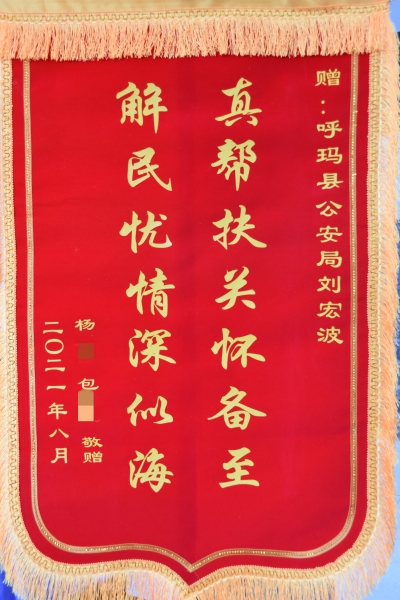 赠：呼玛县公安局刘宏波
真帮扶关怀备至
解民忧情深似海
杨 包 敬赠
二〇二一年八月